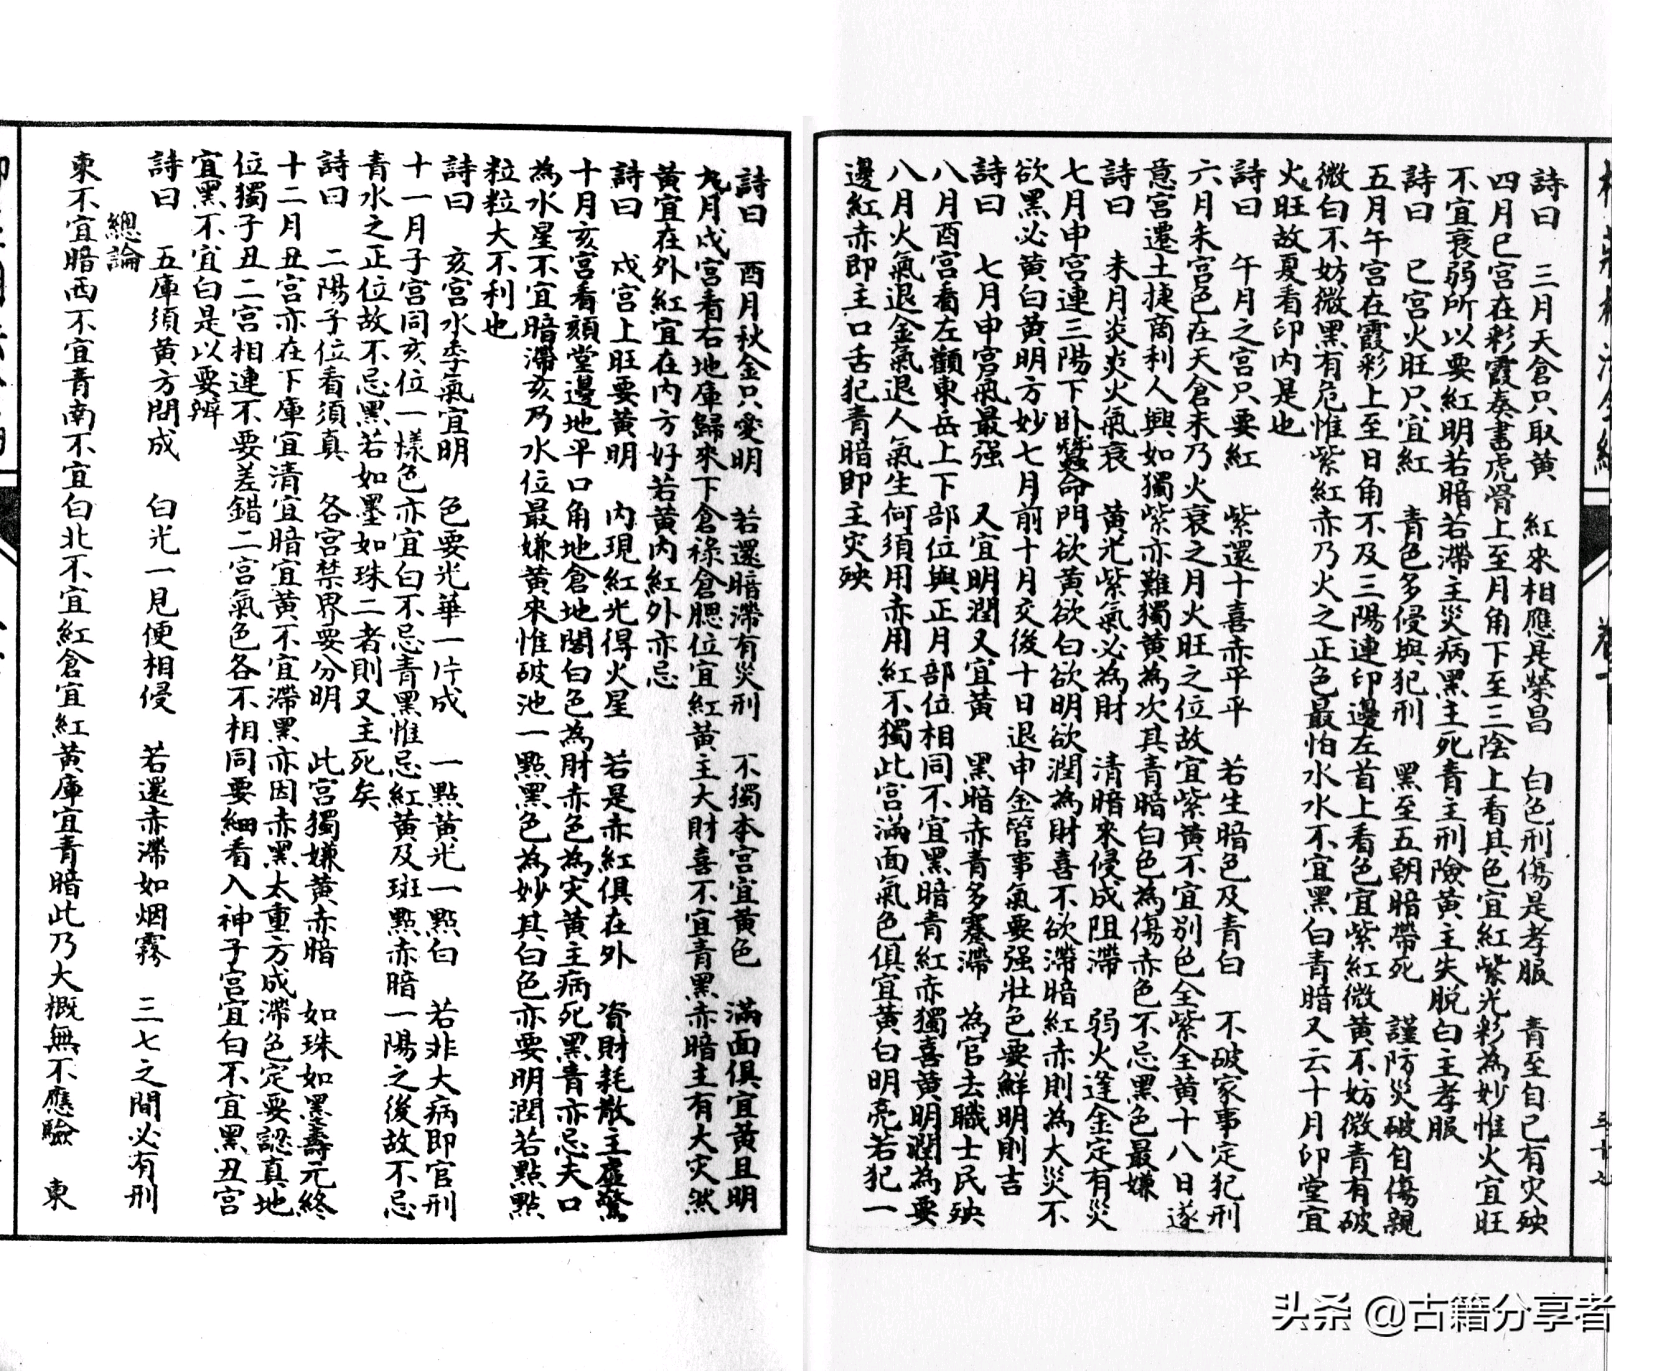 詩曰　三月天倉只取黃　紅來相應是榮昌　白色刑傷是孝服　青至自己有灾殃
四月巳宮在彩霞奏書虎骨上至月角下至三陰上看其色宜紅紫光彩為妙惟火宜旺
不宜衰弱所以要紅明若暗若滯主災病黑主死青主刑險黃主失脫白主孝服
詩曰　巳宮火旺只宜紅　青色多侵與犯刑　黑至五朝暗帶死　謹防災破自傷親
五月午宮在霞彩上至日角不及三陽連印邊左首上看色宜紫紅微黃不妨微青有破
微白不妨微黑有危惟紫紅赤乃火之正色最怕水水不宜黑白青暗又云十月印堂宜
火旺故夏看印內是也
詩曰　午月之宮只要紅　紫還十喜赤平平　若生暗色及青白　不破家事定犯刑
六月未宮色在天倉未乃火衰之月火旺之位故宜紫黃不宜別色全紫全黃十八日遂
意宮遷土捷商利人興如獨紫亦難獨黃為次其青暗白色為傷赤色不忌黑色最嫌
詩曰　未月炎炎火氣衰　黃光紫氣必為財　清暗來侵成阻滯　弱火逢金定有災
七月申宮連三陽下卧蠶命門欲黃欲白欲明欲潤為財喜不欲滯暗紅赤則為大災不
欲黑必黃白黃明方妙七月前十月交後十日退申金管事氣要强壯色要鮮明則吉
詩曰　七月申宮氣最强　又宜明潤又宜黃　黑暗赤青多蹇滯　為官去職士民殃
八月酉宮看左顴東岳上下部位與正月部位相同不宜黑暗青紅赤獨喜黃明潤為要
八月火氣退金氣退人氣生何須用赤用紅不獨此宮滿面氣色俱宜黃白明亮若犯一
邊紅赤即主口舌犯青暗即主灾殃
三十七
詩曰　酉月秋金只愛明　若還暗滯有災刑　不獨本宮宜黃色　滿面俱宜黃且明
九月戌宮看右地庫歸來下倉祿倉腮位宜紅黃主大財喜不宜青黑赤暗主有大灾然
黃宜在外紅宜在內方好若黃內紅外亦忌
詩曰　戌宮上旺要黃明　內現紅光得火星　若是赤紅俱在外　資財耗散主虛驚
十月亥宮看頦堂邊地平口角地倉地閣白色為財赤色為灾黃主病死黑青亦忌夫口
為水星不宜暗滯亥乃水位最嫌黃來惟破池一點黑色為妙其白色亦要明潤若點點
粒粒大不利也
詩曰　亥宮水季氣宜明　色要光華一片成　一點黃光一點白　若非大病即官刑
十一月子宮同亥位一樣色亦宜白不忌青黑惟忌紅黃及斑點赤暗一陽之後故不忌
青水之正位故不忌黑若如墨如珠二者則又主死矣
詩曰　二陽子位看須真　各宮禁界要分明　此宮獨嫌黃赤暗　如珠如黑壽元終
十二月丑宮亦在下庫宜清宜暗宜黃不宜滯黑亦因赤黑太重方成滯色定要認真地
位獨子丑二宮相連不要差錯二宮氣色各不相同要細看入神子宮宜白不宜黑丑宮
宜黑不宜白是以要辨
詩曰　五庫須黃方閗成　白光一見便相侵　若還赤滯如烟霧　三七之間必有刑
總論
東不宜暗西不宜青南不宜白北不宜紅倉宜紅黃庫宜青暗此乃大概無不應驗　東
头条 @古籍分享者